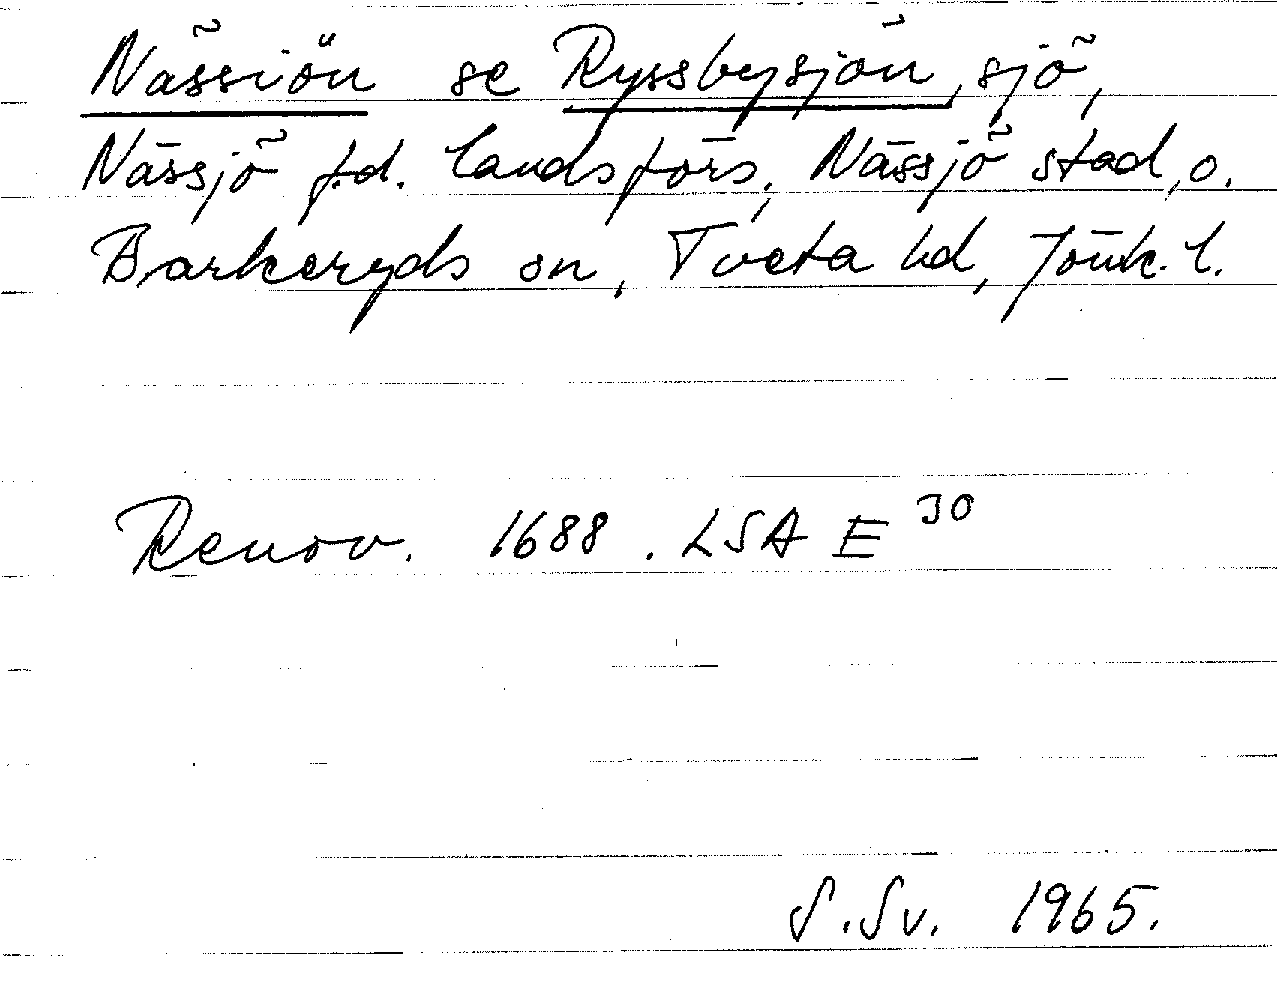 Nässiön se Ryssbysjön, sjö,
Nässjö f.d. landsförs., Nässjö stad, o.
Barkeryds sn, Tveta hd, Jönk. l.
Renov. 1688. LSA E 30
S. Sv. 1965.